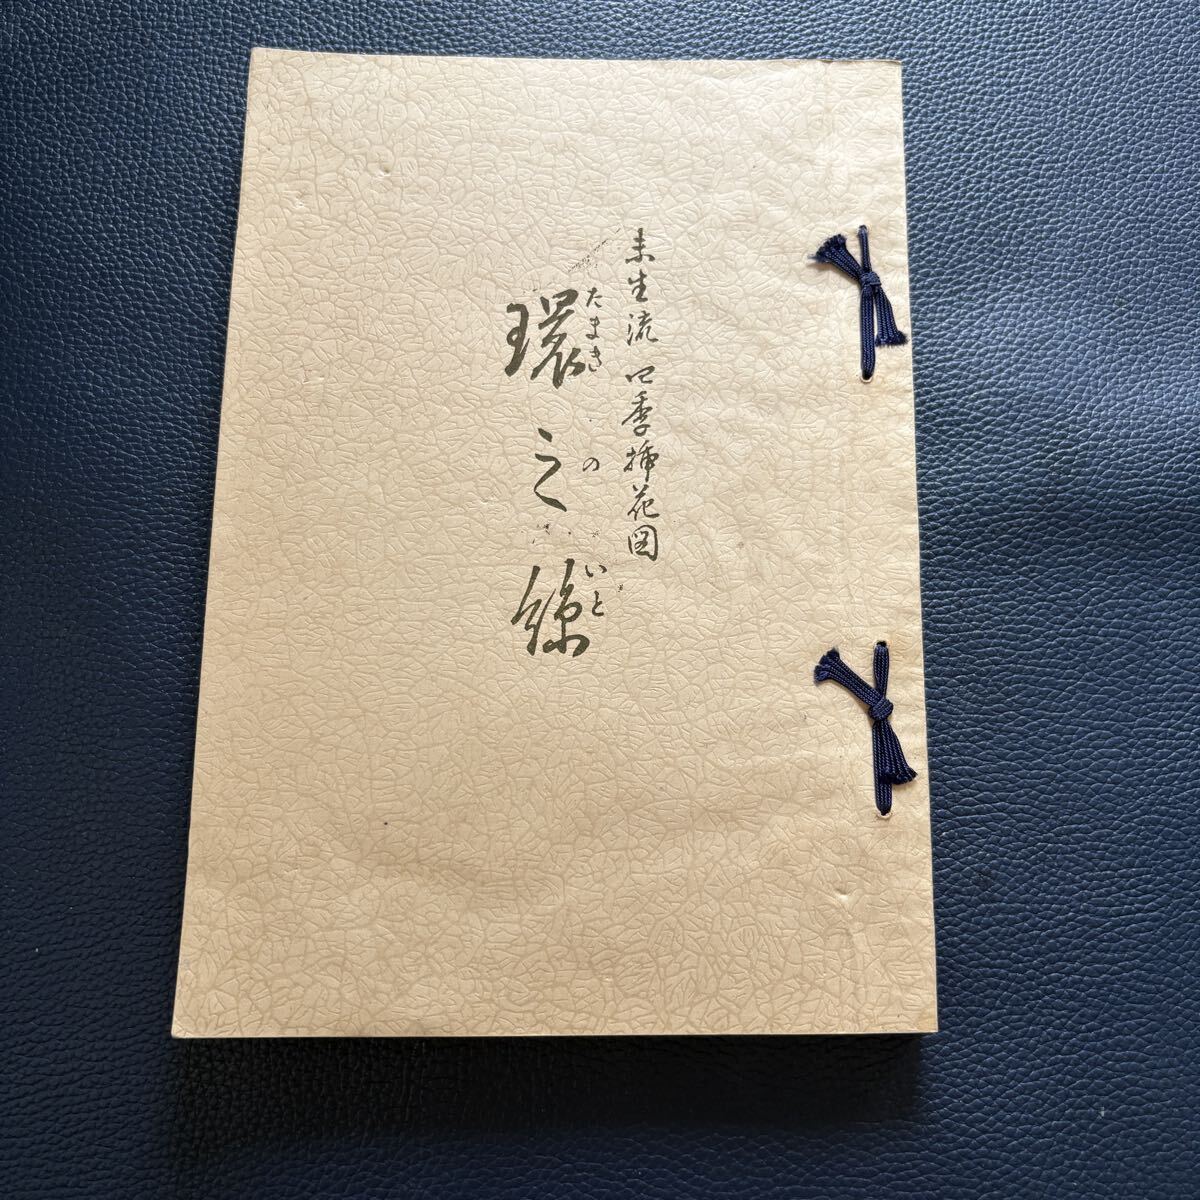 未生流 四季挿花図
環之絲
たまきのいと